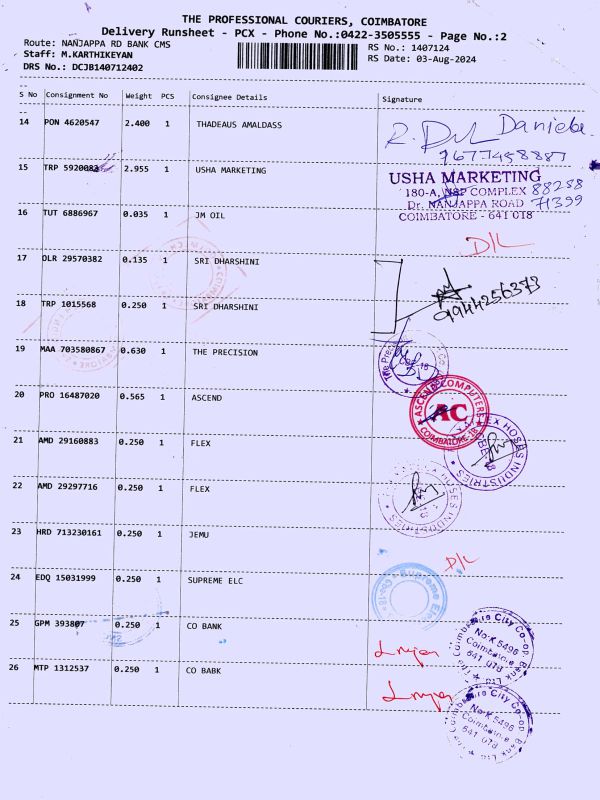 THE PROFESSIONAL COURIERS, COIMBATORE
Delivery Runsheet - PCX - Phone No.:0422-3505555 - Page No.:2
Route: NANJAPPA RD BANK CMS RS No.: 1407124
Staff: M.KARTHIKEYAN RS Date: 03-Aug-2024
DRS No.: DCJB140712402
S No Consignment No Weight PCS Consignee Details Signature
14 PON 4620547 2.400 1 THADEAUS AMALDASS
15 TRP 5920083 2.955 1 USHA MARKETING
USHA MARKETING
180-A, NSP COMPLEX 88288
Dr. NANJAPPA ROAD 71399
COIMBATORE - 641 018
16 TUT 6886967 0.035 1 JM OIL D/L
17 OLR 29570382 0.135 1 SRI DHARSHINI
9944256373
18 TRP 1015568 0.250 1 SRI DHARSHINI
19 MAA 703580867 0.630 1 THE PRECISION
20 PRO 16487020 0.565 1 ASCEND
ASCEND COMPUTERS
AC
COIMBATORE-18
21 AMD 29160883 0.250 1 FLEX
22 AMD 29297716 0.250 1 FLEX
23 HRD 713230161 0.250 1 JEMU D/L
24 EDQ 15031999 0.250 1 SUPREME ELC
25 GPM 393807 0.250 1 CO BANK
No:K 5496
Coimbatore
641 018
26 MTP 1312537 0.250 1 CO BABK
No:K 5496
Coimbatore
641 018